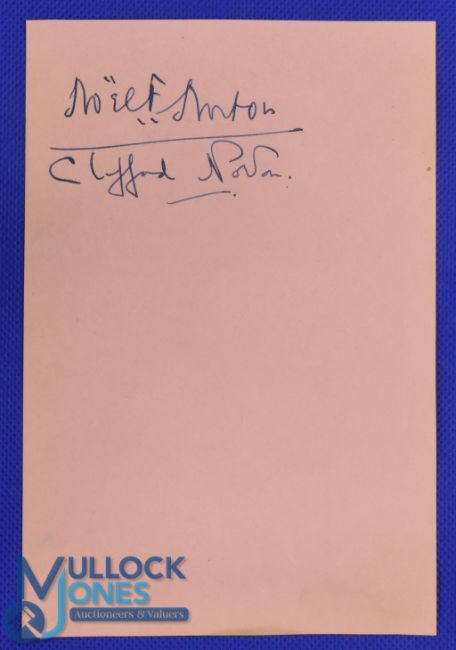 Noël F. Norton
Clifford Norton.
MULLOCK
JONES
Auctioneers & Valuers